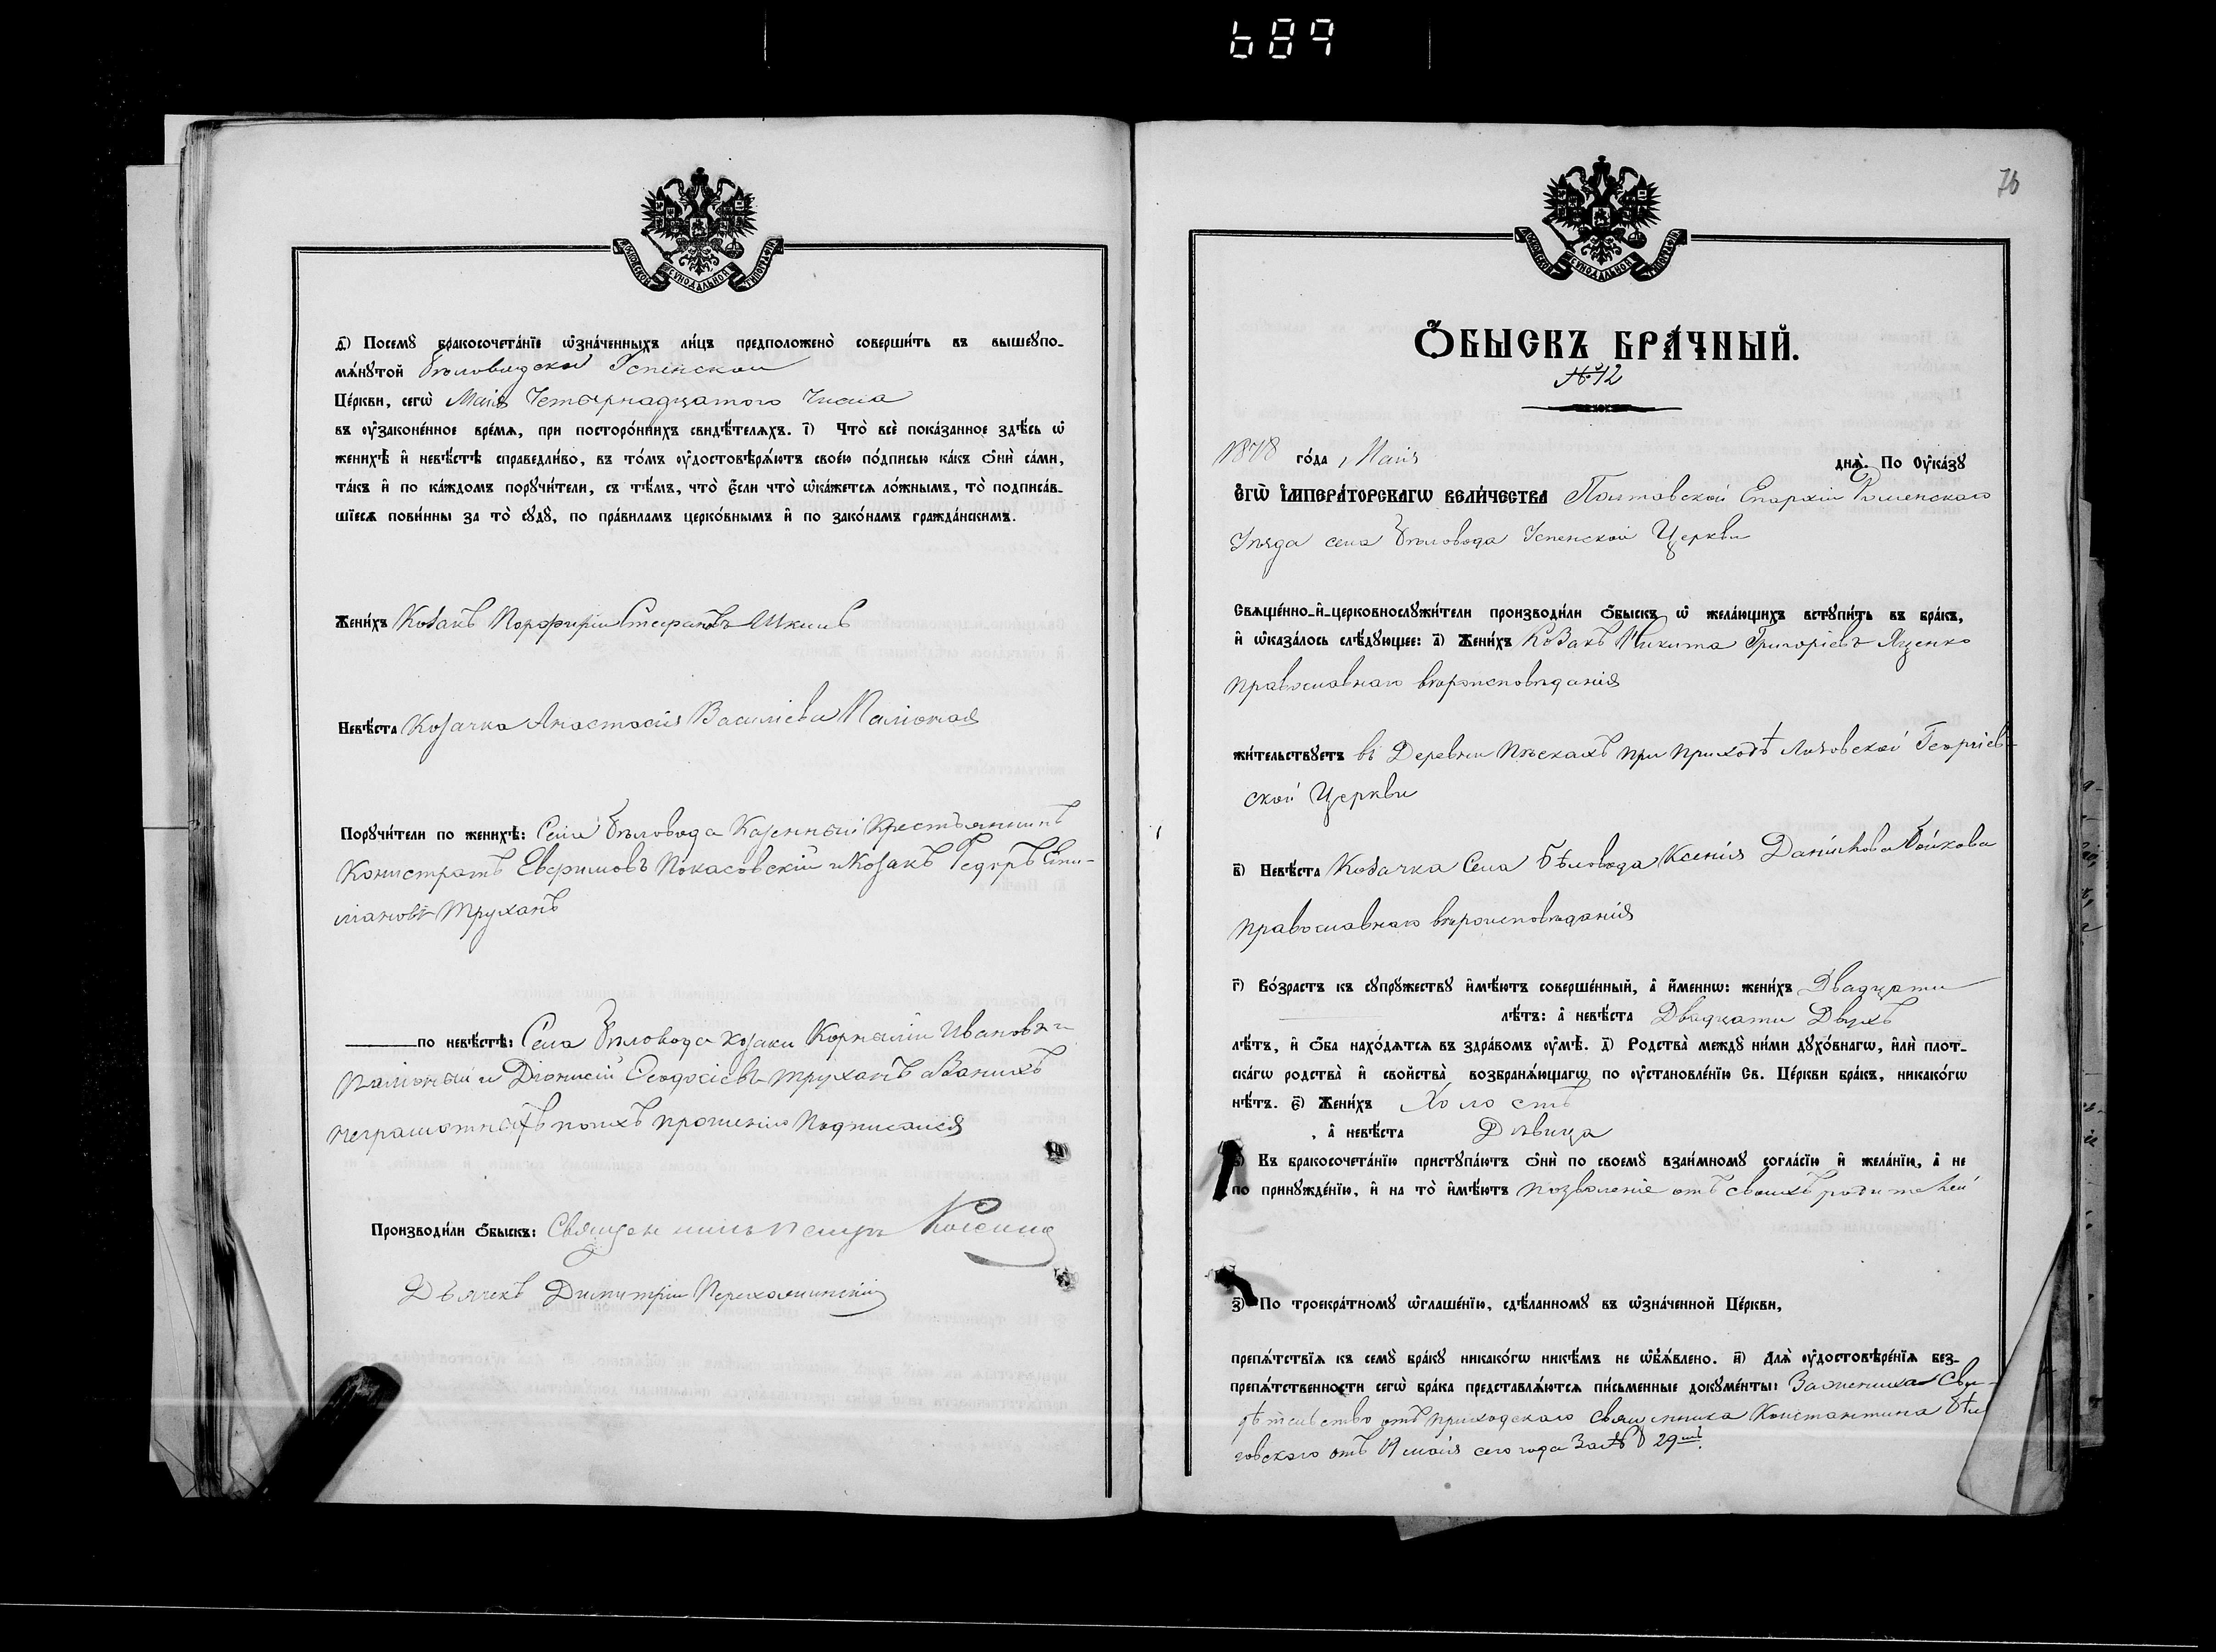 689
МОСКОВСКОЙ СУНОДАЛЬНОЙ ТИПОГРАФІИ
д҃) Посемꙋ бракосочета́нїе ѡ҆зна́ченныхъ ли́цъ предположено̀ соверши́ть въ вышеꙋпо-
мѧ́нꙋтой Бѣловодской Успенской
Це́ркви, сегѡ̀ Маія Четырнадцатого Числа
въ ᲂу҆зако́ненное вре́мѧ, при посторо́ннихъ свидѣ́телѧхъ. і҃) Что̀ всѐ пока́занное здѣ́сь ѡ҆
женихѣ̀ и҆ невѣ́стѣ справедли́во, въ то́мъ ᲂу҆достовѣрѧ́ютъ свое́ю по́дписью ка́къ ѻ҆нѝ са́ми,
та́къ и҆ по ка́ждомъ порꙋчи́тели, съ тѣ́мъ, что̀ є҆́сли что̀ ѡ҆ка́жетсѧ ло́жнымъ, то̀ подписа́в-
шїесѧ пови́нны за то̀ сꙋдꙋ̀, по пра́виламъ церко́внымъ и҆ по зако́намъ гражда́нскимъ.
Жени́хъ Козакъ Порфирій Стефановъ
Невѣ́ста Козачка Анастасія Василіева Паліоная
Порꙋчи́тели по женихѣ̀: Села Бѣловода Казенный Крестьянинъ
Евфимовъ Покасовскій и Козакъ Федоръ Еми-
ліановъ Труханъ
по невѣ́стѣ: Села Бѣловода козаки Корнилій Ивановъ
Паліоный и Діонисій Феодосіевъ Труханъ а За нихъ
неграмотныхъ по ихъ прошенію Подписался
Производи́ли ѻ҆́быскъ: Священникъ Петръ
Дьячекъ Димитрій
76
МОСКОВСКОЙ СУНОДАЛЬНОЙ ТИПОГРАФІИ
Ѻ҆́БЫСКЪ БРА́ЧНЫЙ.
№ 12
1878 го́да Маія днѧ̀. По Оу҆ка́зꙋ
Є҆гѡ̀ И҆мпера́торскагѡ Вели́чества Полтавской Епархіи Роменскаго
Уѣзда села Бѣловода Успенской Церкви
Свѧще́нно-и҆-церковнослꙋжи́тели производи́ли ѻ҆́быскъ ѡ҆ жела́ющихъ встꙋпи́ть въ бра́къ,
и҆ ѡ҆каза́лось слѣ́дꙋющее: а҃) Жени́хъ Козакъ Никита Григоріевъ Яценко
православнаго вѣроисповѣданія
жи́тельствꙋетъ въ Деревни Пѣскахъ при приходѣ Георгіев-
ской Церкви
в҃) Невѣ́ста Козачка Села Бѣловода Ксенія Данилова Бойкова
православнаго вѣроисповѣданія
г҃) Во́зрастъ къ сꙋпрꙋ́жествꙋ и҆мѣ́ютъ соверше́нный, а҆ и҆́меннѡ: жени́хъ Двадцати
лѣ́тъ: а҆ невѣ́ста Двадцати Двухъ
лѣ́тъ, и҆ ѻ҆́ба нахо́дѧтсѧ въ здра́вомъ ᲂу҆мѣ̀. д҃) Родства̀ междꙋ ни́ми дꙋхо́внагѡ, и҆лѝ плот-
ска́гѡ родства̀ и҆ сво́йства̀ возбранѧ́ющагѡ по ᲂу҆становле́нїю Св. Це́ркви бра́къ, никако́гѡ
нѣ́тъ. є҃) Жени́хъ Холостъ
, а҆ невѣ́ста Дѣвица
ѕ҃) Въ бракосочета́нїю пристꙋпа́ютъ ѻ҆нѝ по своемꙋ̀ взаи́мномꙋ согла́сїю и҆ жела́нїю, а҆ не
по принꙋжде́нїю, и҆ на то̀ и҆мѣ́ютъ позволеніе отъ своихъ родителей
з҃) По троекра́тномꙋ ѡ҆глаше́нїю, сдѣ́ланномꙋ въ ѡ҆зна́ченной Це́ркви,
препѧ́тствїѧ къ семꙋ̀ бра́кꙋ никако́гѡ никѣ́мъ не ѡ҆б̾ѧ́влено. и҃) Длѧ̀ ᲂу҆достовѣре́нїѧ без-
препѧ́тственности сегѡ̀ бра́ка представлѧ́ютсѧ пи́сьменные докꙋме́нты: За жениха Сви-
дѣтельство отъ приходскаго священника Константина
отъ маія сего года За № 29